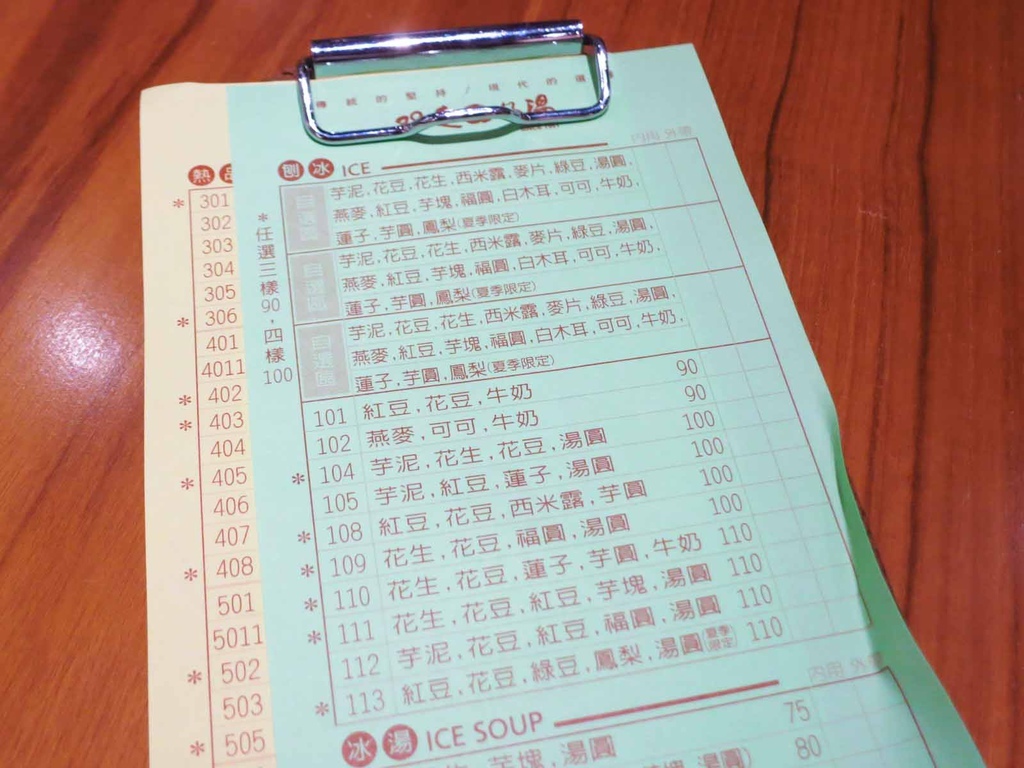 傳統的堅持/現代的選
內用 外帶
刨冰 ICE
*任選三樣90,四樣100
自選區
芋泥,花豆,花生,西米露,麥片,綠豆,湯圓,
燕麥,紅豆,芋塊,福圓,白木耳,可可,牛奶,
蓮子,芋圓,鳳梨(夏季限定)
自選區
芋泥,花豆,花生,西米露,麥片,綠豆,湯圓,
燕麥,紅豆,芋塊,福圓,白木耳,可可,牛奶,
蓮子,芋圓,鳳梨(夏季限定)
自選區
芋泥,花豆,花生,西米露,麥片,綠豆,湯圓,
燕麥,紅豆,芋塊,福圓,白木耳,可可,牛奶,
蓮子,芋圓,鳳梨(夏季限定)
101 紅豆,花豆,牛奶 90
102 燕麥,可可,牛奶 90
*104 芋泥,花生,花豆,湯圓 100
105 芋泥,紅豆,蓮子,湯圓 100
*108 紅豆,花豆,西米露,芋圓 100
*109 花生,花豆,福圓,湯圓 100
*110 花生,花豆,蓮子,芋圓,牛奶 110
*111 花生,花豆,紅豆,芋塊,湯圓 110
112 芋泥,花豆,紅豆,福圓,湯圓 110
*113 紅豆,花豆,綠豆,鳳梨,湯圓 夏季限定 110
內用 外帶
冰湯 ICE SOUP
芋塊,湯圓 75
80
熱品
*301
302
303
304
305
*306
401
4011
*402
*403
404
*405
406
407
*408
501
5011
*502
503
*505